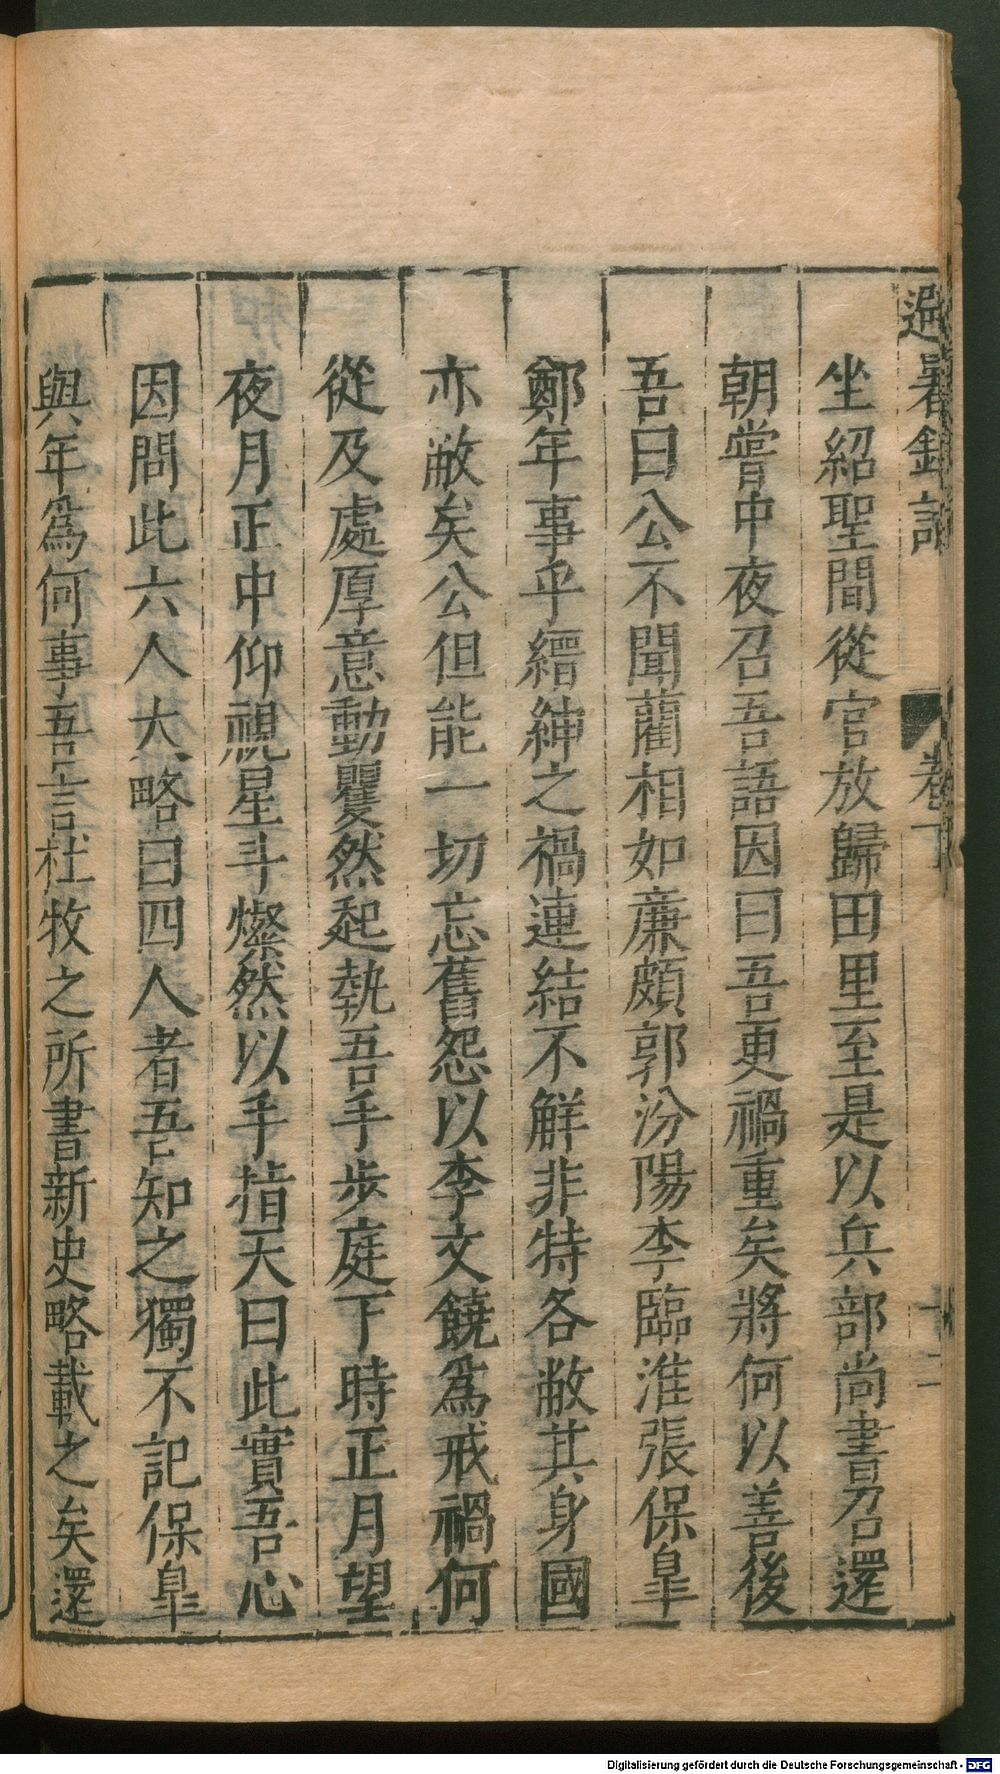 避暑錄話 卷下 十二
坐紹聖間從官放歸田里至是以兵部尚書召還
朝嘗中夜召吾語因曰吾更禍重矣將何以善後
吾曰公不聞藺相如廉頗郭汾陽李臨淮張保臯
鄭年事乎縉紳之禍連結不解非特各敝其身國
亦敝矣公但能一切忘舊怨以李文饒爲戒禍何
從及處厚意動矍然起執吾手步庭下時正月望
夜月正中仰視星斗燦然以手指天曰此實吾心
因問此六人大略曰四人者吾知之獨不記保臯
與年爲何事吾言杜牧之所書新史略載之矣還
Digitalisierung gefördert durch die Deutsche Forschungsgemeinschaft - DFG